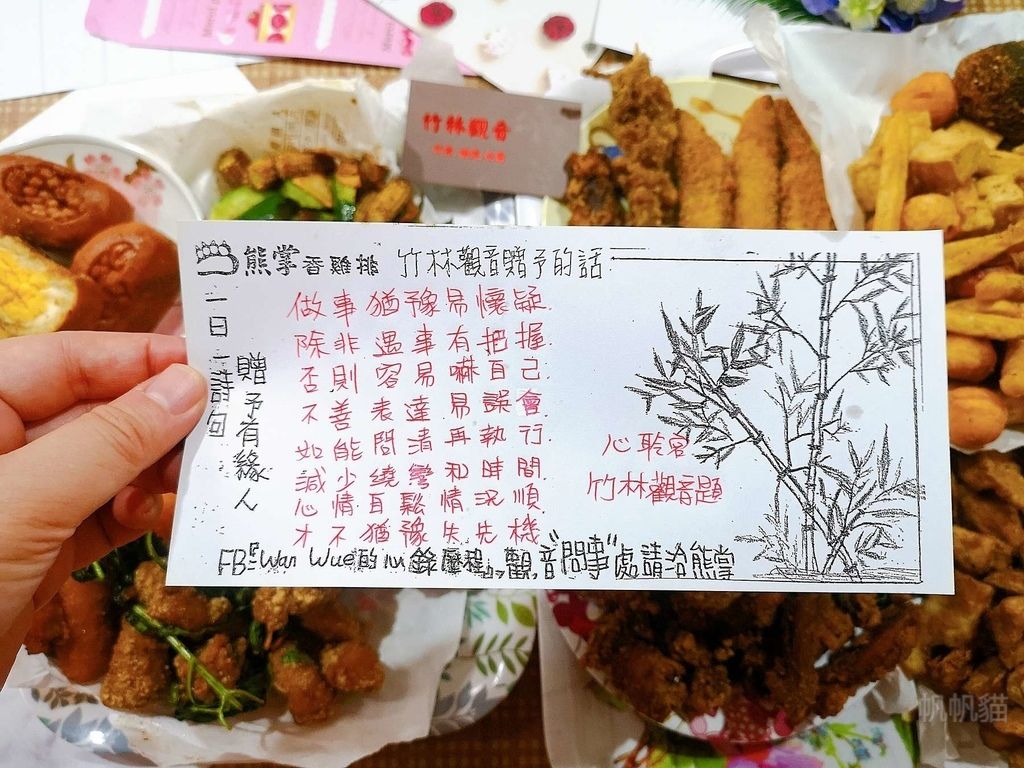 竹林觀音
熊掌香雞排 竹林觀音贈予的話
一日一詩句
贈予有緣人
做事猶豫易懷疑.
除非遇事有把握.
否則容易嚇自己.
不善表達易誤會.
如能問清再執行.
減少繞彎和時間.
心情自鬆情況順
才不猶豫失先機
心聆宮
竹林觀音題
FB:『Wan Wue的心路歷程』觀音"問事"處請洽熊掌
帆帆貓